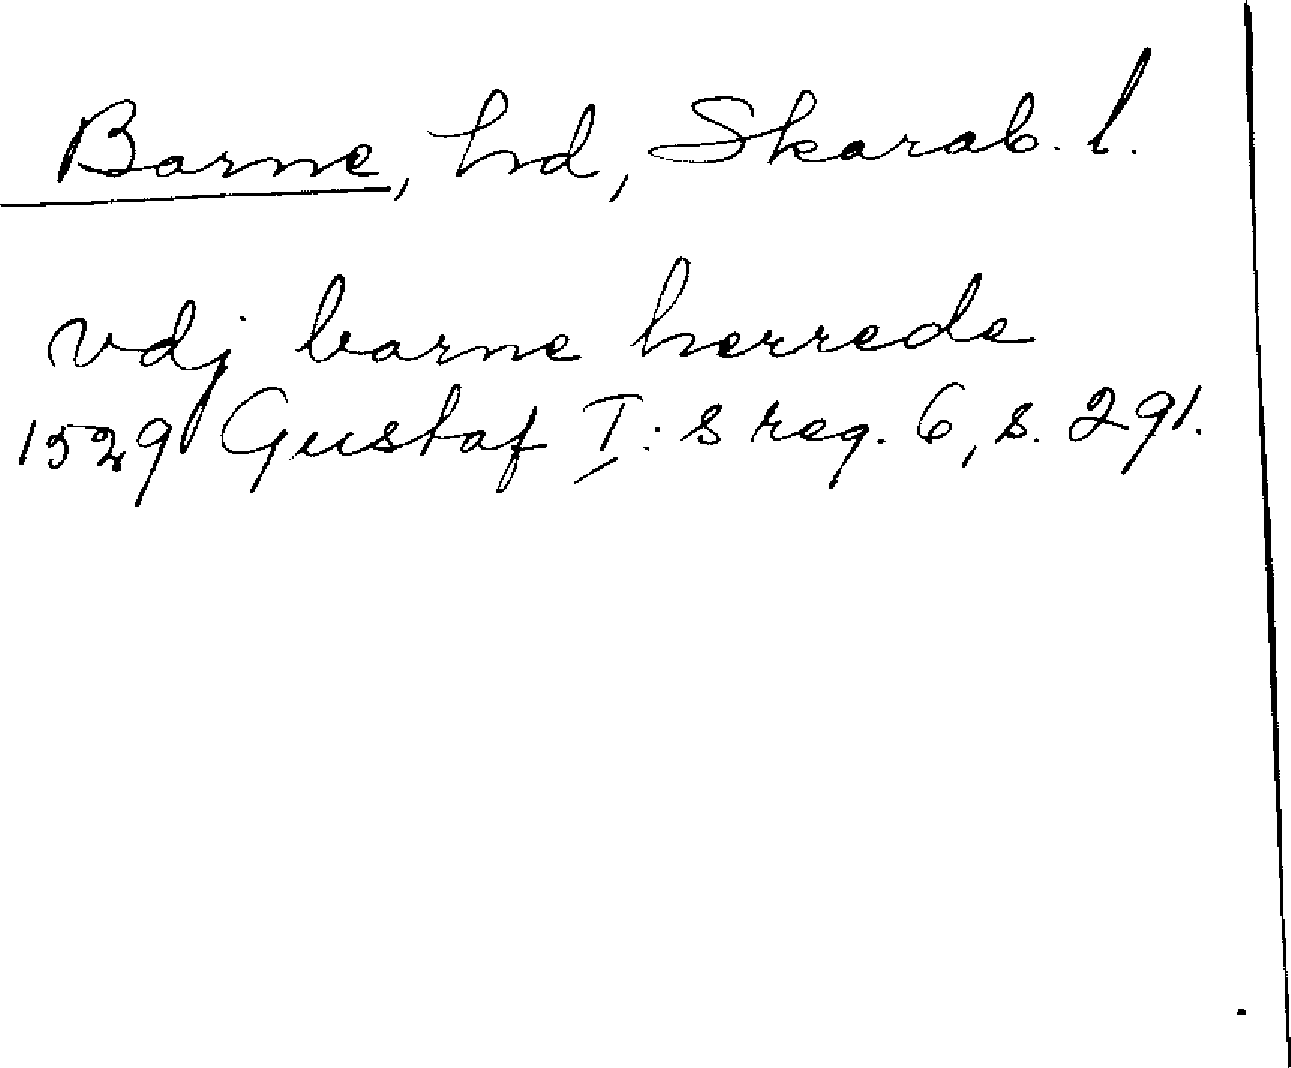 Barne, hd, Skarab. l.
vdj barne herrede
1529 Gustaf I:s reg. 6, s. 291.